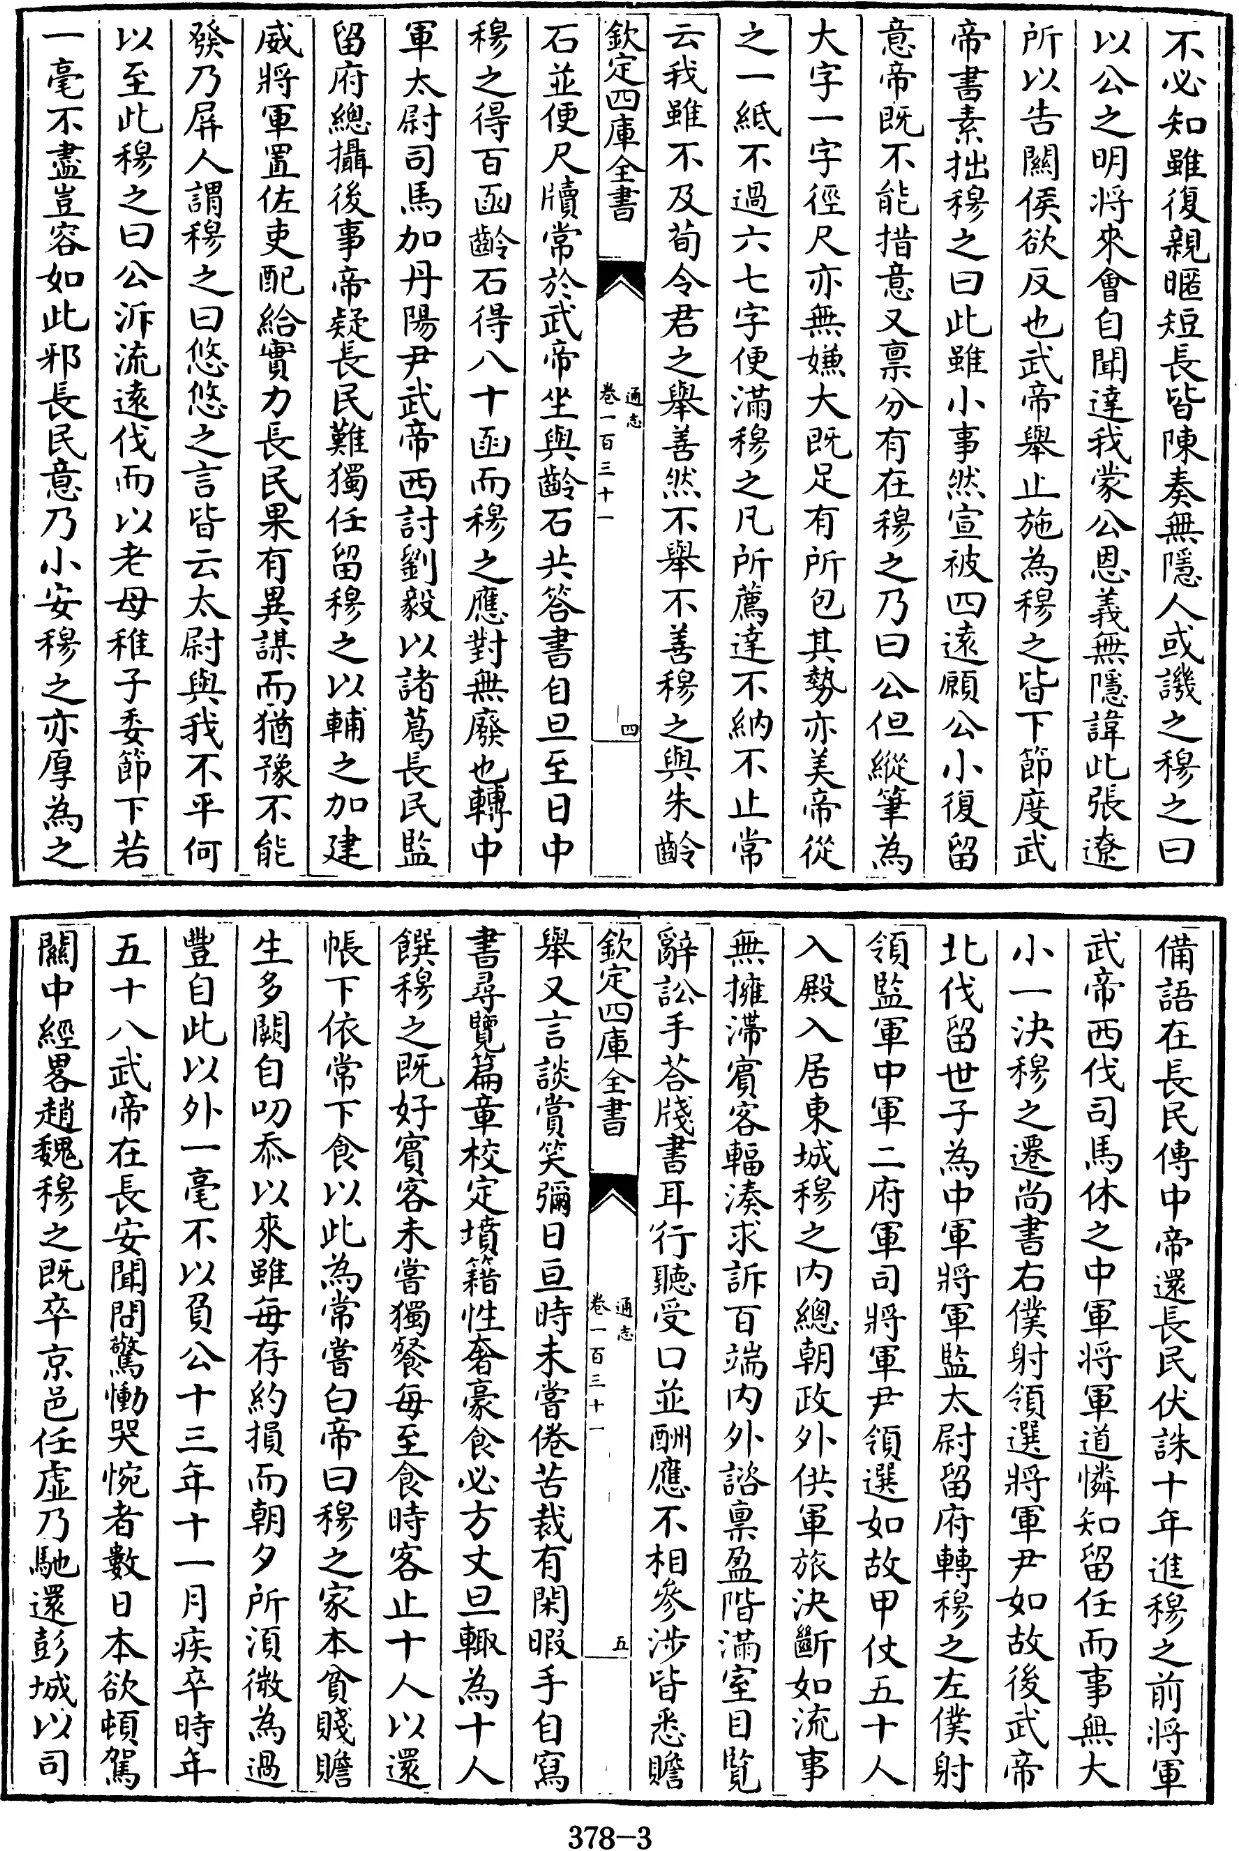 不必知雖復親暱短長皆陳奏無隱人或譏之穆之曰
以公之明將來會自聞達我蒙公恩義無隱諱此張遼
所以告關侯欲反也武帝舉止施為穆之皆下節度武
帝書素拙穆之曰此雖小事然宣被四遠願公小復留
意帝既不能措意又禀分有在穆之乃曰公但縱筆為
大字一字徑尺亦無嫌大既足有所包其勢亦美帝從
之一紙不過六七字便滿穆之凡所薦達不納不止常
云我雖不及荀令君之舉善然不舉不善穆之與朱齡
欽定四庫全書
通志
卷一百三十一
四
石並便尺牘常於武帝坐與齡石共答書自旦至日中
穆之得百函齡石得八十函而穆之應對無廢也轉中
軍太尉司馬加丹陽尹武帝西討劉毅以諸葛長民監
留府總攝後事帝疑長民難獨任留穆之以輔之加建
威將軍置佐吏配給實力長民果有異謀而猶豫不能
發乃屏人謂穆之曰悠悠之言皆云太尉與我不平何
以至此穆之曰公泝流遠伐而以老母稚子委節下若
一毫不盡豈容如此邪長民意乃小安穆之亦厚為之
備語在長民傳中帝還長民伏誅十年進穆之前將軍
武帝西伐司馬休之中軍將軍道憐知留任而事無大
小一決穆之遷尚書右僕射領選將軍尹如故後武帝
北伐留世子為中軍將軍監太尉留府轉穆之左僕射
領監軍中軍二府軍司將軍尹領選如故甲仗五十人
入殿入居東城穆之内總朝政外供軍旅決斷如流事
無擁滯賓客輻湊求訴百端内外諮禀盈階滿室目覧
辭訟手荅牋書耳行聽受口並酬應不相參涉皆悉贍
欽定四庫全書
通志
卷一百三十一
五
舉又言談賞笑彌日亘時未嘗倦苦裁有閑暇手自寫
書尋覽篇章校定墳籍性奢豪食必方丈旦輙為十人
饌穆之既好賓客未嘗獨餐每至食時客止十人以還
帳下依常下食以此為常嘗白帝曰穆之家本貧賤贍
生多闕自叨忝以來雖每存約損而朝夕所須微為過
豐自此以外一毫不以負公十三年十一月疾卒時年
五十八武帝在長安聞問驚慟哭惋者數日本欲頓駕
關中經畧趙魏穆之既卒京邑任虛乃馳還彭城以司
378-3